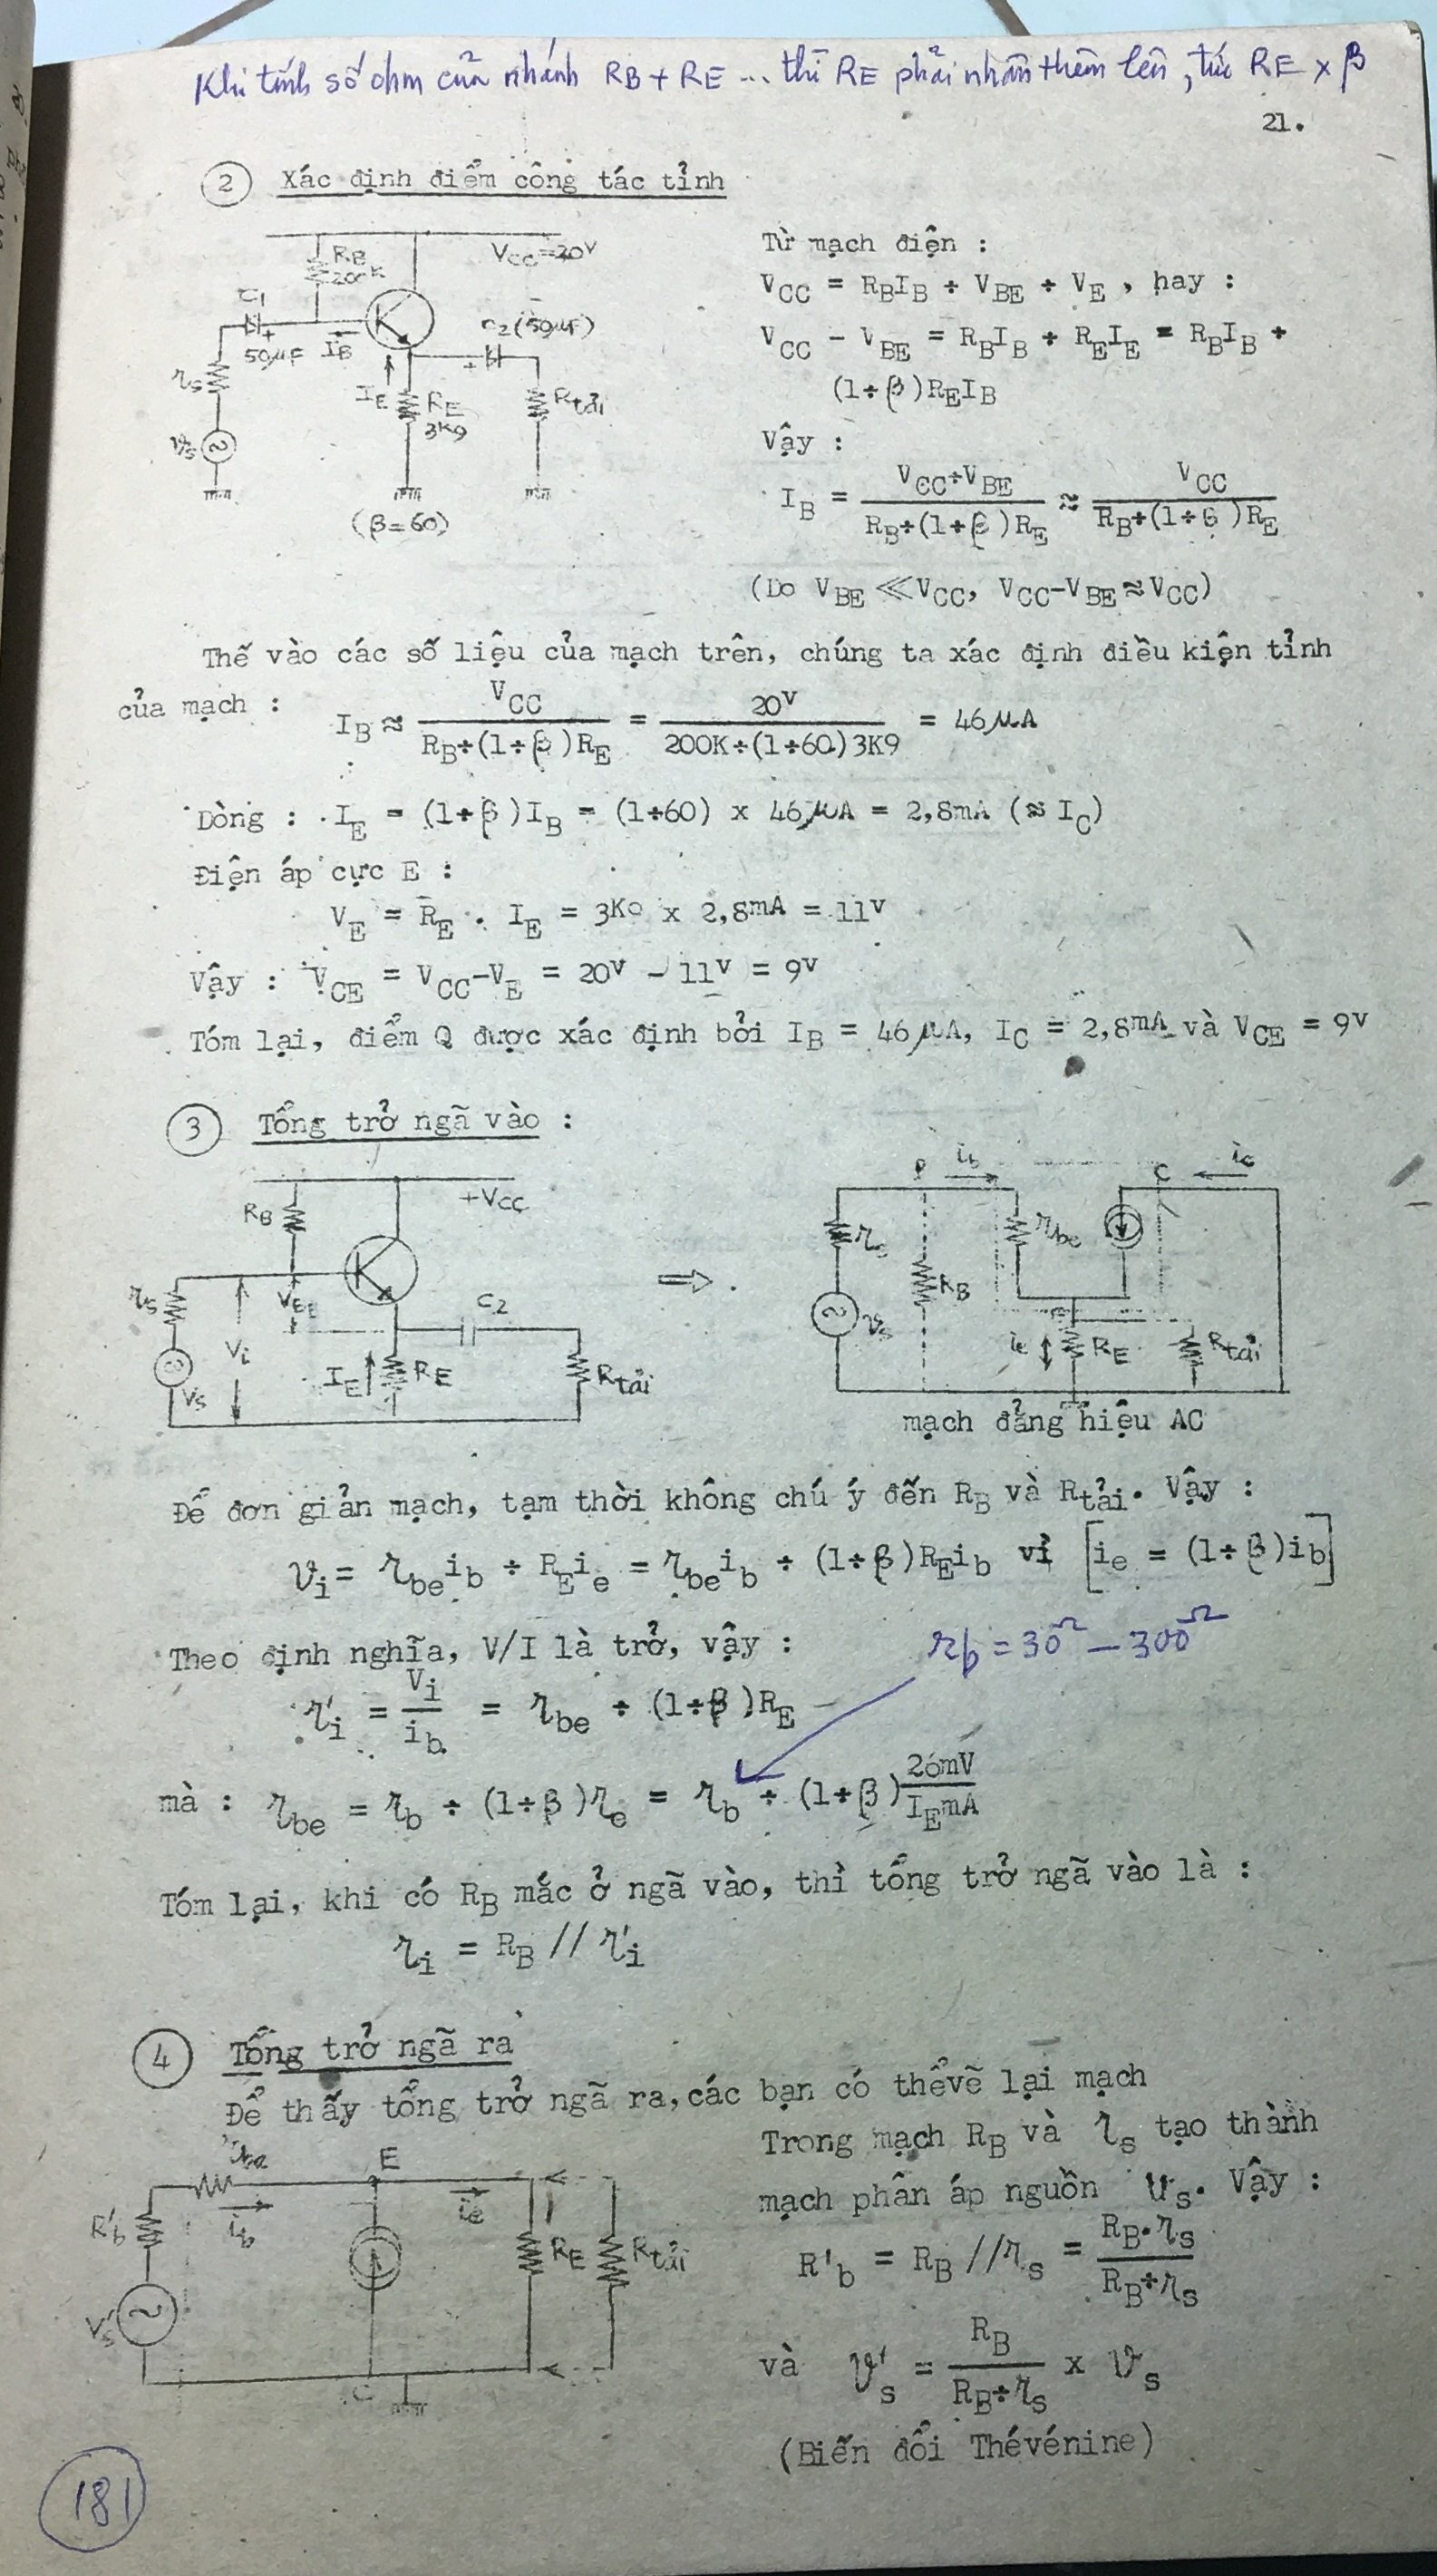 Khi tính số ohm của nhánh RB + RE ... thì RE phải nhân thêm lên, tức RE x β
21.
2 Xác định điểm công tác tỉnh
RB
200K
VCC=20V
C1
50µF
IB
C2(50µF)
rs
IE
RE
3K9
Rtải
vs
(β=60)
Từ mạch điện :
VCC = RBIB + VBE + VE , hay :
VCC - VBE = RBIB + REIE = RBIB +
(1+β)REIB
Vậy :
IB = VCC+VBE / RB+(1+β)RE ≈ VCC / RB+(1+β)RE
(Do VBE ≪ VCC, VCC-VBE ≈ VCC)
Thế vào các số liệu của mạch trên, chúng ta xác định điều kiện tỉnh
của mạch : IB ≈ VCC / RB+(1+β)RE = 20V / 200K+(1+60)3K9 = 46µA
Dòng : IE = (1+β)IB = (1+60) x 46µA = 2,8mA (≈ IC)
Điện áp cực E :
VE = RE . IE = 3K9 x 2,8mA = 11V
Vậy : VCE = VCC-VE = 20V - 11V = 9V
Tóm lại, điểm Q được xác định bởi IB = 46µA, IC = 2,8mA và VCE = 9V
3 Tổng trở ngã vào :
RB
+VCC
rs
VBE
C2
Vi
IE
RE
Rtải
Vs
⇒
ib
C
ic
rs
rbe
RB
vs
E
ie
RE
Rtải
mạch đẳng hiệu AC
Để đơn giản mạch, tạm thời không chú ý đến RB và Rtải. Vậy :
vi = rbeib + REie = rbeib + (1+β)REib vì [ie = (1+β)ib]
Theo định nghĩa, V/I là trở, vậy :
rb = 30Ω – 300Ω
r'i = Vi / ib = rbe + (1+β)RE
mà : rbe = rb + (1+β)re = rb + (1+β) 26mV / IEmA
Tóm lại, khi có RB mắc ở ngã vào, thì tổng trở ngã vào là :
ri = RB // r'i
4 Tổng trở ngã ra
Để thấy tổng trở ngã ra, các bạn có thể vẽ lại mạch
E
R'b
ib
ie
RE
Rtải
V's
C
Trong mạch RB và rs tạo thành
mạch phân áp nguồn vs. Vậy :
R'b = RB // rs = RB.rs / RB+rs
và v's = RB / RB+rs x vs
(Biến đổi Thévénine)
181